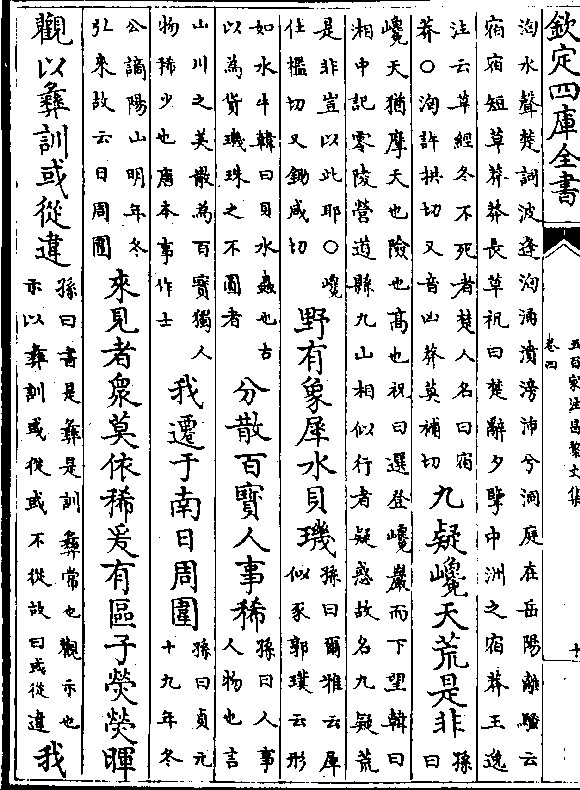 欽定四庫全書
洶水聲楚詞波逢洶涌濆滂沛兮洞庭在岳陽離騷云
宿宿短草莽莽長草祝曰楚辭夕擥中洲之宿莽王逸
注云草經冬不死者楚人名曰宿
莽〇洶許拱切又音凶莽莫補切
九疑巉天荒是非
孫
曰
巉天猶摩天也險也高也祝曰選登巉巖而下望韓曰
湘中記零陵營道縣九山相似行者疑惑故名九疑荒
是非豈以此耶〇巉
仕檻切又鋤咸切
野有象犀水貝璣
孫曰爾雅云犀
似豕郭璞云形
如水牛韓曰貝水蟲也古
以為貨璣珠之不圓者
分散百寶人事稀
孫曰人事
人物也言
山川之美散為百寶獨人
物稀少也唐本事作士
我遷于南日周圍
孫曰貞元
十九年冬
公謫陽山明年冬
弘來故云日周圍
來見者衆莫依稀爰有區子熒熒暉
觀以彝訓或從違
孫曰書是彝是訓彝常也觀示也
示以彝訓或從或不從故曰或從違
我
五百家注昌黎文集
卷四
十